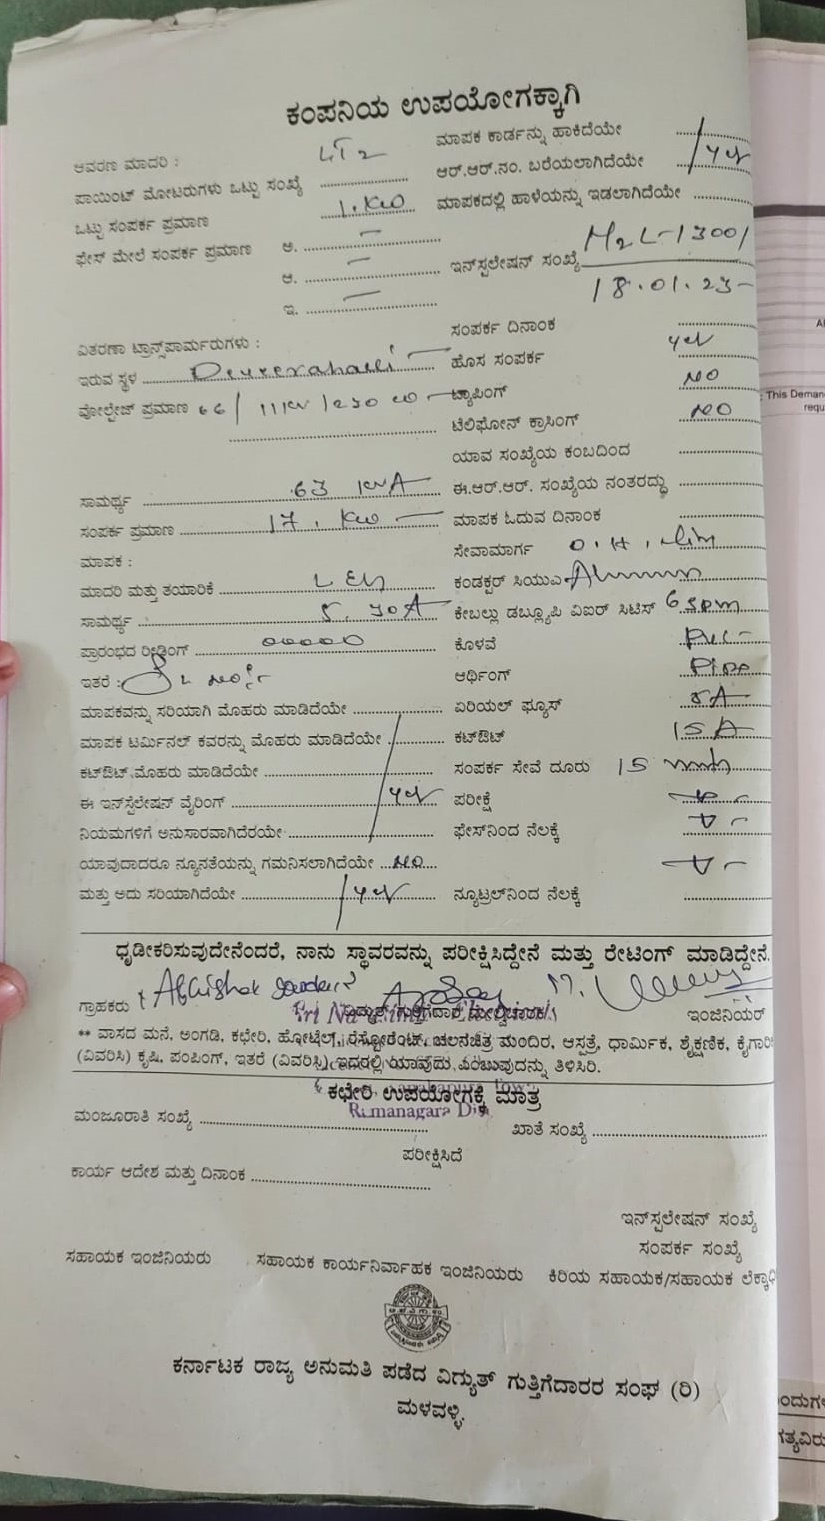 ಕಂಪನಿಯ ಉಪಯೋಗಕ್ಕಾಗಿ
ಆವರಣ ಮಾದರಿ : LT2 ಮಾಪಕ ಕಾರ್ಡನ್ನು ಹಾಕಿದೆಯೇ
ಪಾಯಿಂಟ್ ಮೋಟರುಗಳು ಒಟ್ಟು ಸಂಖ್ಯೆ ಆರ್.ಆರ್.ನಂ. ಬರೆಯಲಾಗಿದೆಯೇ yes
ಒಟ್ಟು ಸಂಪರ್ಕ ಪ್ರಮಾಣ 1. KW ಮಾಪಕದಲ್ಲಿ ಹಾಳೆಯನ್ನು ಇಡಲಾಗಿದೆಯೇ
ಫೇಸ್ ಮೇಲೆ ಸಂಪರ್ಕ ಪ್ರಮಾಣ ಅ. –
ಆ. – ಇನ್‌ಸ್ಟಲೇಷನ್ ಸಂಖ್ಯೆ M2L-13001
ಇ. – 18.01.23
ಸಂಪರ್ಕ ದಿನಾಂಕ
ವಿತರಣಾ ಟ್ರಾನ್ಸ್‌ಫಾರ್ಮರುಗಳು : ಹೊಸ ಸಂಪರ್ಕ yes
ಇರುವ ಸ್ಥಳ ಟ್ಯಾಪಿಂಗ್ NO
ವೋಲ್ಟೇಜ್ ಪ್ರಮಾಣ 66/11KV/250 ಟೆಲಿಫೋನ್ ಕ್ರಾಸಿಂಗ್ NO
ಯಾವ ಸಂಖ್ಯೆಯ ಕಂಬದಿಂದ
ಸಾಮರ್ಥ್ಯ 63 KVA ಈ.ಆರ್.ಆರ್. ಸಂಖ್ಯೆಯ ನಂತರದ್ದು
ಸಂಪರ್ಕ ಪ್ರಮಾಣ 17. KW ಮಾಪಕ ಓದುವ ದಿನಾಂಕ
ಮಾಪಕ : ಸೇವಾಮಾರ್ಗ O.H.
ಮಾದರಿ ಮತ್ತು ತಯಾರಿಕೆ ಕಂಡಕ್ಟರ್ ಸಿಯುಎ
ಸಾಮರ್ಥ್ಯ 5.30A ಕೇಬಲ್ಲು ಡಬ್ಲ್ಯೂಪಿ ವಿಐರ್ ಸಿಟಿಸ್
ಪ್ರಾರಂಭದ ರೀಡಿಂಗ್ 00000 ಕೊಳವೆ
ಇತರೆ : ಅರ್ಥಿಂಗ್ Pipe
ಮಾಪಕವನ್ನು ಸರಿಯಾಗಿ ಮೊಹರು ಮಾಡಿದೆಯೇ ಏರಿಯಲ್ ಫ್ಯೂಸ್ 5A
ಮಾಪಕ ಟರ್ಮಿನಲ್ ಕವರನ್ನು ಮೊಹರು ಮಾಡಿದೆಯೇ ಕಟ್‌ಔಟ್ 15 A
ಕಟ್‌ಔಟ್ ಮೊಹರು ಮಾಡಿದೆಯೇ ಸಂಪರ್ಕ ಸೇವೆ ದೂರು 15
ಈ ಇನ್‌ಸ್ಟಲೇಷನ್ ವೈರಿಂಗ್ yes ಪರೀಕ್ಷೆ
ನಿಯಮಗಳಿಗೆ ಅನುಸಾರವಾಗಿದೆರಯೇ ಫೇಸ್‌ನಿಂದ ನೆಲಕ್ಕೆ
ಯಾವುದಾದರೂ ನ್ಯೂನತೆಯನ್ನು ಗಮನಿಸಲಾಗಿದೆಯೇ NO
ಮತ್ತು ಅದು ಸರಿಯಾಗಿದೆಯೇ yes ನ್ಯೂಟ್ರಲ್‌ನಿಂದ ನೆಲಕ್ಕೆ
ಧೃಡೀಕರಿಸುವುದೇನೆಂದರೆ, ನಾನು ಸ್ಥಾವರವನ್ನು ಪರೀಕ್ಷಿಸಿದ್ದೇನೆ ಮತ್ತು ರೇಟಿಂಗ್ ಮಾಡಿದ್ದೇನೆ.
ಗ್ರಾಹಕರು ವಿದ್ಯುತ್ ಗುತ್ತಿಗೆದಾರ ಮೇಲ್ವಿಚಾರಕ ಇಂಜಿನಿಯರ್
** ವಾಸದ ಮನೆ, ಅಂಗಡಿ, ಕಛೇರಿ, ಹೋಟೆಲ್, ರೆಸ್ಟೋರೆಂಟ್, ಚಲನಚಿತ್ರ ಮಂದಿರ, ಆಸ್ಪತ್ರೆ, ಧಾರ್ಮಿಕ, ಶೈಕ್ಷಣಿಕ,
(ವಿವರಿಸಿ) ಕೃಷಿ, ಪಂಪಿಂಗ್, ಇತರೆ (ವಿವರಿಸಿ) ಇದರಲ್ಲಿ ಯಾವುದು ಎಂಬುವುದನ್ನು ತಿಳಿಸಿರಿ.
ಕಛೇರಿ ಉಪಯೋಗಕ್ಕೆ ಮಾತ್ರ
Ramanagara Dis
ಮಂಜೂರಾತಿ ಸಂಖ್ಯೆ ಖಾತೆ ಸಂಖ್ಯೆ
ಪರೀಕ್ಷಿಸಿದೆ
ಕಾರ್ಯ ಆದೇಶ ಮತ್ತು ದಿನಾಂಕ
ಇನ್‌ಸ್ಟಲೇಷನ್ ಸಂಖ್ಯೆ
ಸಂಪರ್ಕ ಸಂಖ್ಯೆ
ಸಹಾಯಕ ಇಂಜಿನಿಯರು ಸಹಾಯಕ ಕಾರ್ಯನಿರ್ವಾಹಕ ಇಂಜಿನಿಯರು ಕಿರಿಯ ಸಹಾಯಕ/ಸಹಾಯಕ
ಕರ್ನಾಟಕ ರಾಜ್ಯ ಅನುಮತಿ ಪಡೆದ ವಿದ್ಯುತ್ ಗುತ್ತಿಗೆದಾರರ ಸಂಘ (ರಿ)
ಮಳವಳ್ಳಿ.
This Deman
requ